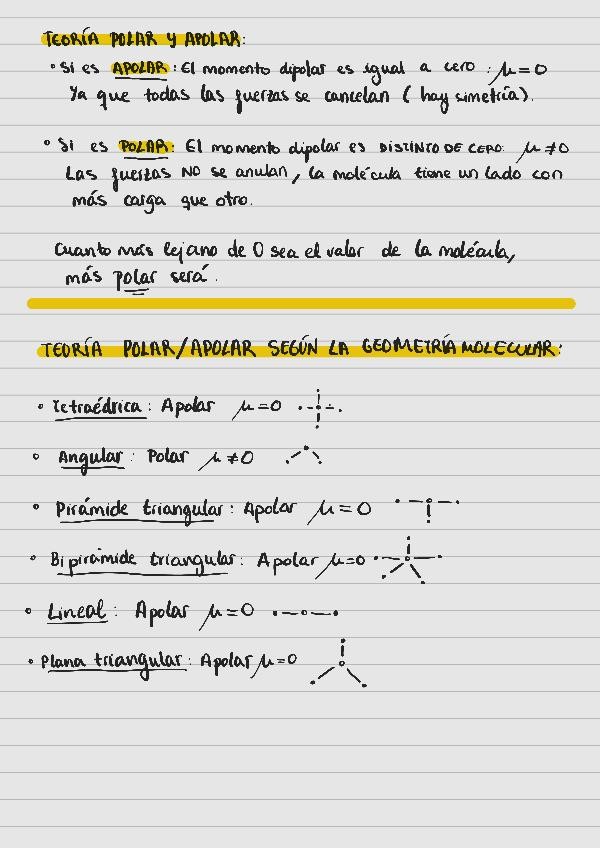 TEORÍA POLAR Y APOLAR:
• Si es APOLAR: El momento dipolar es igual a cero : μ=0
Ya que todas las fuerzas se cancelan ( hay simetría).
• Si es POLAR: El momento dipolar es DISTINTO DE CERO: μ≠0
Las fuerzas NO se anulan, la molécula tiene un lado con
más carga que otro.
Cuanto más lejano de 0 sea el valor de la molécula,
más polar será.
TEORÍA POLAR/APOLAR SEGÚN LA GEOMETRÍA MOLECULAR:
• Tetraédrica: Apolar μ=0
• Angular: Polar μ≠0
• Pirámide triangular: Apolar μ=0
• Bipirámide triangular: Apolar μ=0
• Lineal: Apolar μ=0
• Plana triangular: Apolar μ=0